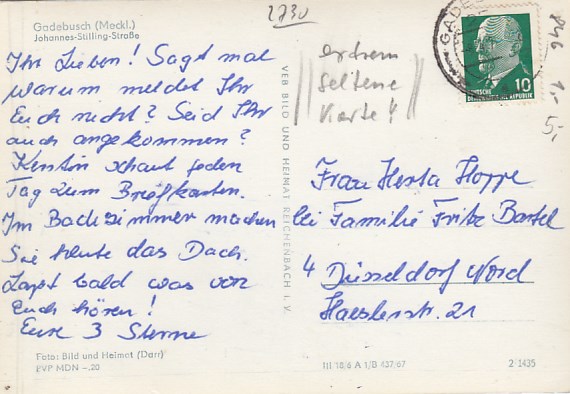 Gadebusch (Meckl.)
Johannes-Stilling-Straße
2730
846
1,-
5,-
extrem
seltene
Karte!!
GADE
10
DEUTSCHE
DEMOKRATISCHE REPUBLIK
Ihr Lieben! Sagt mal
warum meldet Ihr
Euch nicht? Seid Ihr
auch angekommen?
Kerstin schaut jeden
Tag zum Briefkasten.
Im Backzimmer machen
Sie heute das Dach.
Lasst bald was von
Euch hören!
Eure 3 Sterne
VEB BILD UND HEIMAT REICHENBACH I. V.
Frau Herta Hoppe
bei Familie Fritz Bartel
4 Düsseldorf Nord
Haeslerstr. 21
Foto: Bild und Heimat (Darr)
EVP MDN –.20
III 18/6 A 1/B 437/67
2/1435